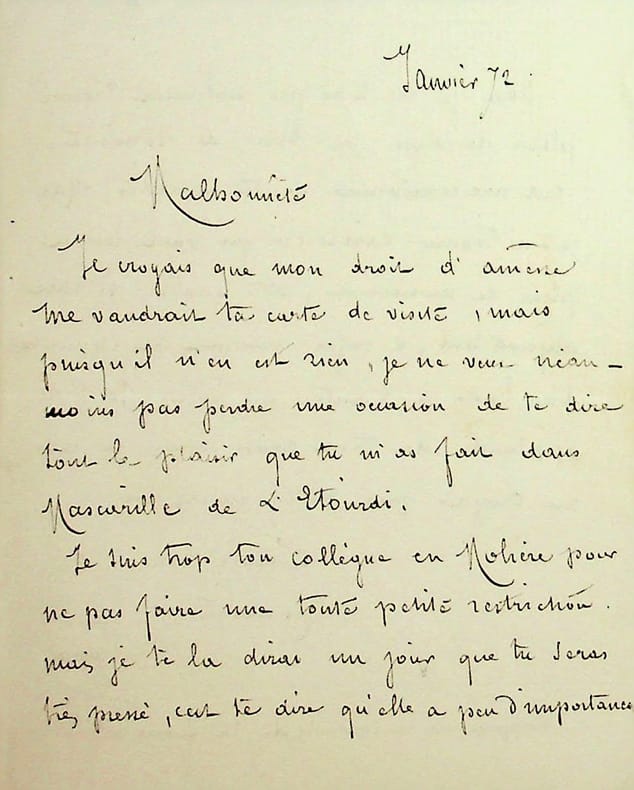 Janvier 72.
Malhonnête
Je croyais que mon droit d'aînesse
me vaudrait ta carte de visite, mais
puisqu'il n'en est rien, je ne veux néan-
moins pas perdre une occasion de te dire
tout le plaisir que tu m'as fait dans
Mascarille de L'Etourdi.
Je suis trop ton collègue en Molière pour
ne pas faire une toute petite restriction.
mais je te la dirai un jour que tu seras
très pressé, c'est te dire qu'elle a peu d'importance